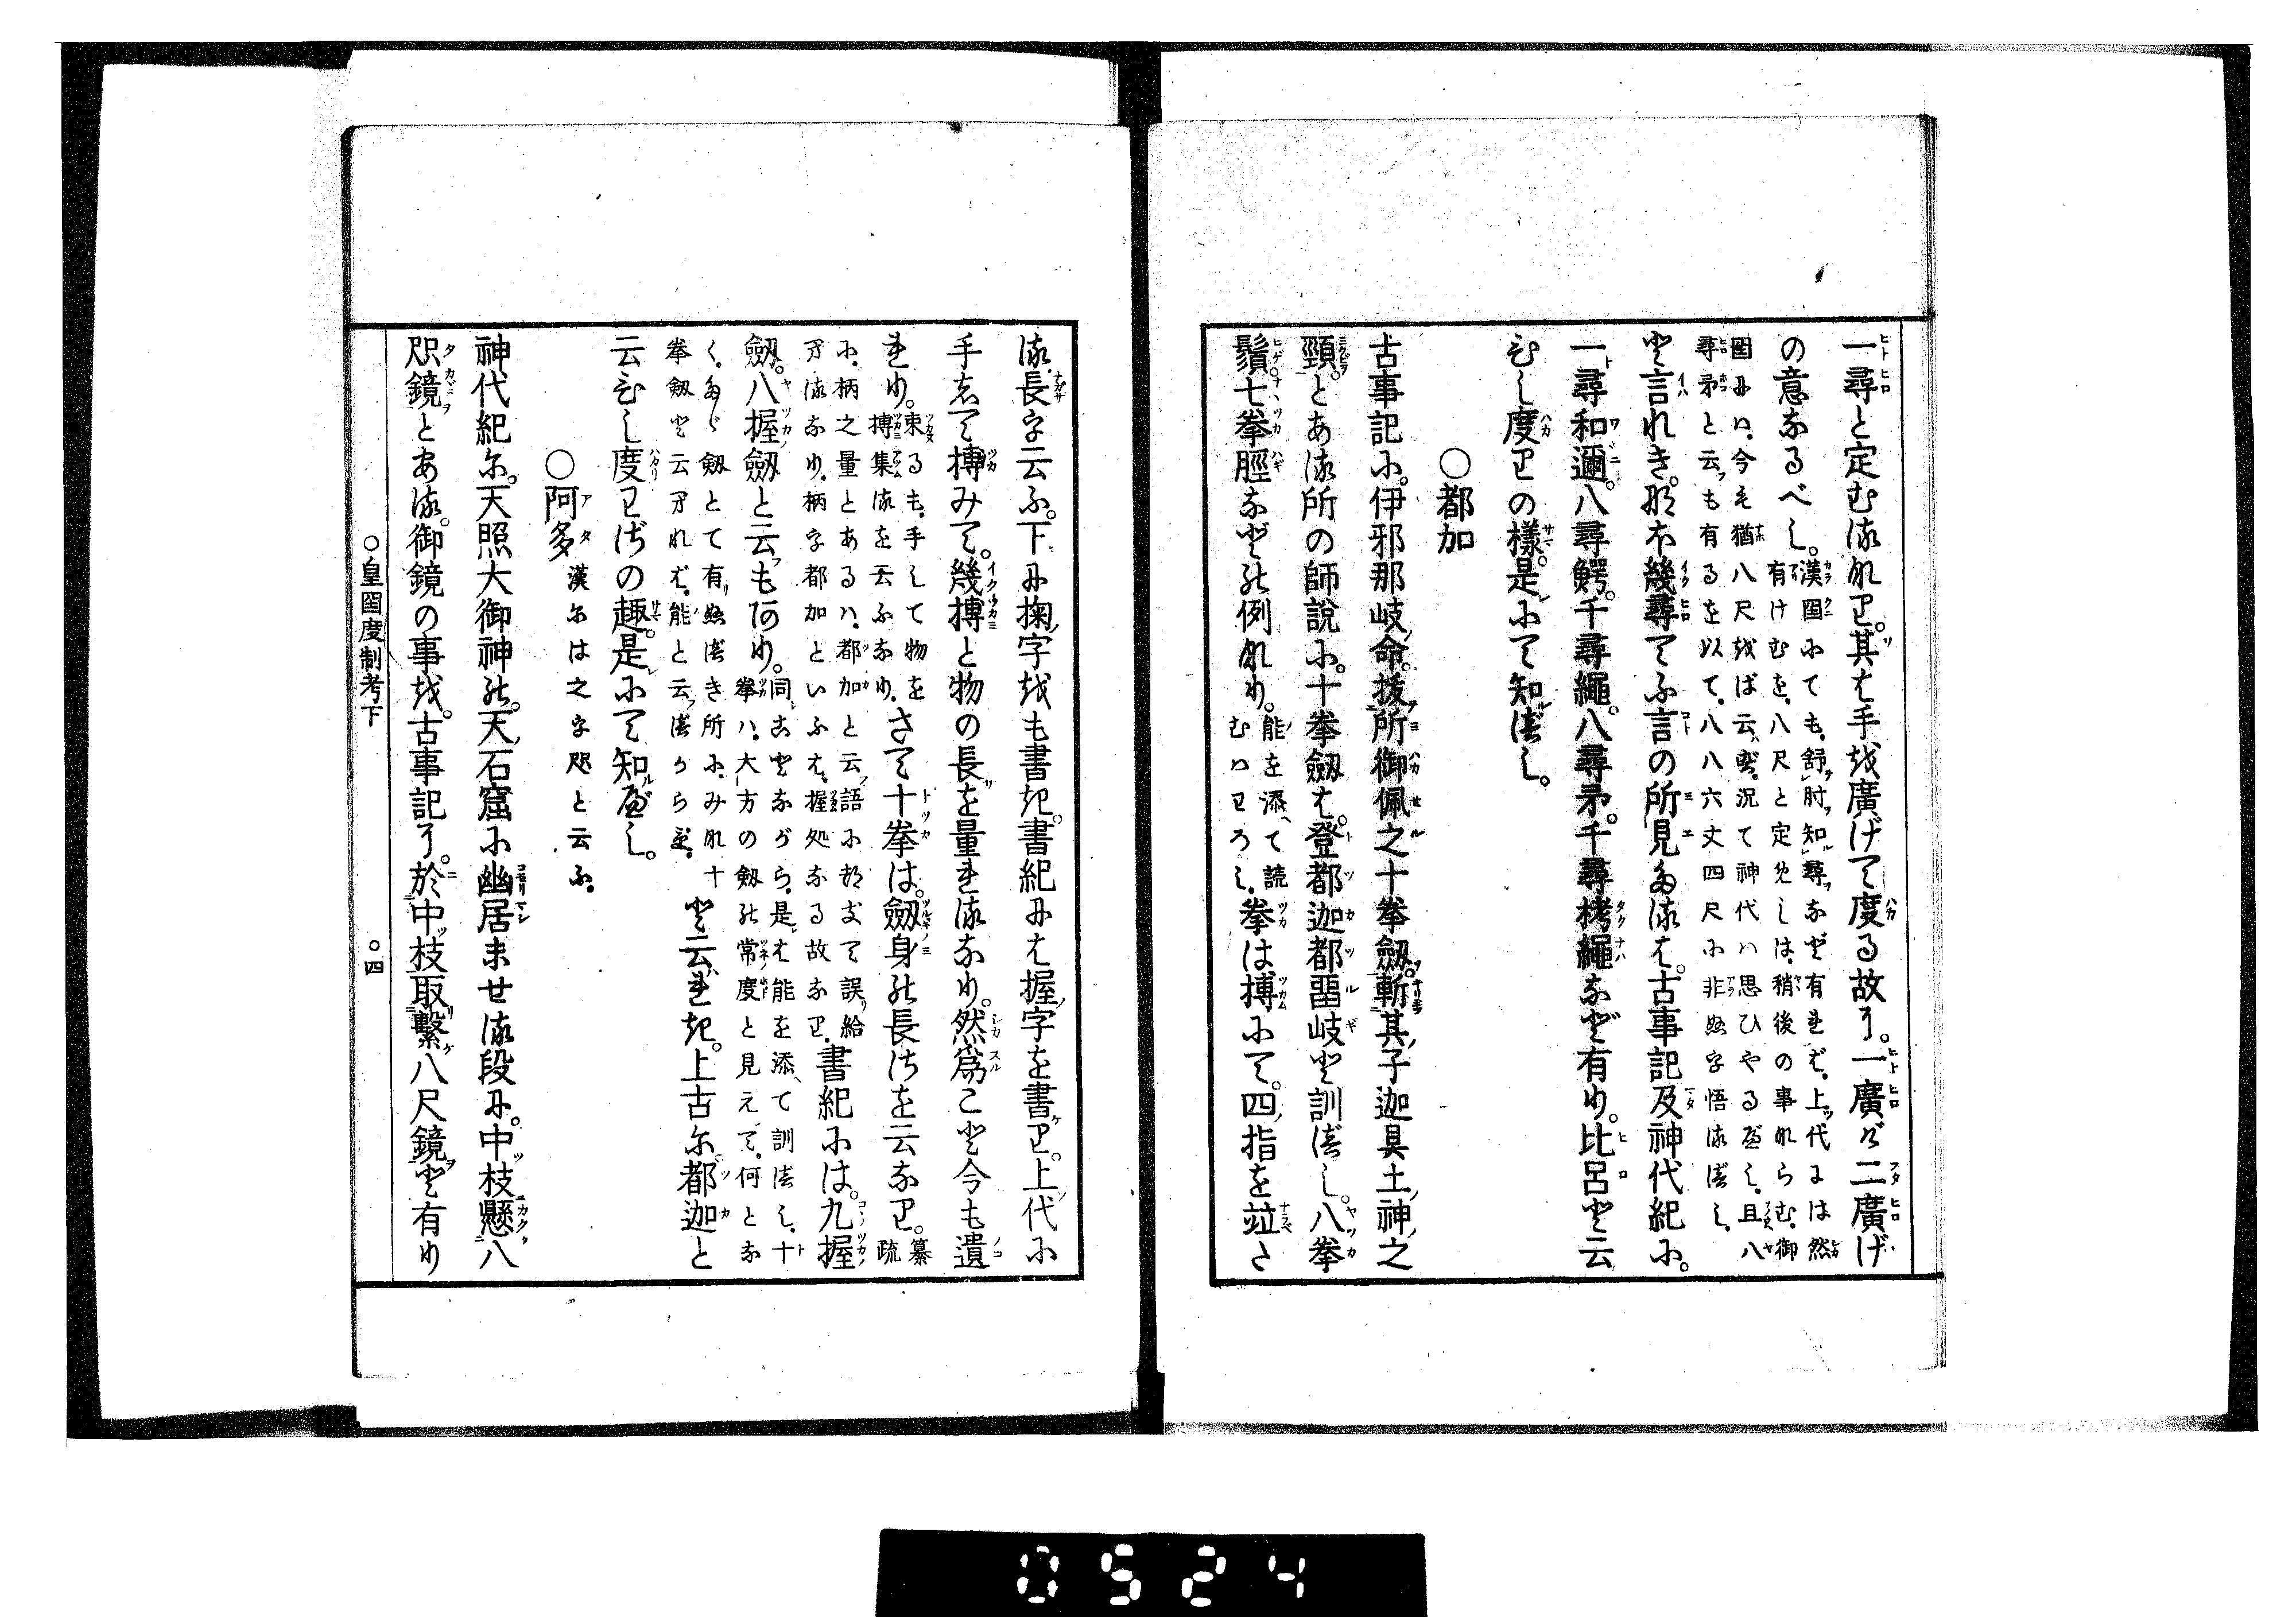 一尋と定むる也。其は手を廣げて度る故に。一廣げ二廣げ
の意なるべし。漢國にても、舒肘知尋など有れど、上代には然
有けむを、八尺と定めしは、稍後の事ならむ、御
國には、今も猶八尺をば云ず、況て神代は思ひやるべし、且八
尋矛と云も有るを以て、八八六丈四尺に非ぬ字悟るべし、
と言れき。なほ幾尋てふ言の所見たるは。古事記及神代紀に。
一尋和邇。八尋鰐。千尋繩。八尋矛。千尋栲繩など有り。比呂と云
むし度りの樣。是にて知べし。
○都加
古事記に。伊邪那岐命。拔所御佩之十拳劔。斬其子迦具土神之
頸。とある所の師說に。十拳劔は。登都迦都留岐と訓べし。八拳
鬚。七拳脛などの例なり。能を添て読
むはわろし、拳は搏にて。四指を竝た
る長字云ふ。下に掬字をも書き。書紀には握字を書り。上代に
手して搏みて。幾搏と物の長を量れるなり。然爲こと今も遺
れり。束るも、手して物を
搏集るを云ふなり、さて十拳は。劔身の長さを云なり。纂疏
に、柄之量とあるは、都加と云語になづみて誤り給
へるなり、柄字都加といふは、握処なる故なり、書紀には。九握
劔。八握劔と云もあり。同ことながら、是は能を添て訓べし、十
拳は、大方の劔の常度と見えて、何とな
く、たゞ劔とて有ぬべき所に、みな十
拳劔と云れば、能と云べからず、と云れき。上古に都迦と
云むし度りざの趣。是にて知べし。
○阿多漢には之字咫と云ふ、
神代紀に。天照大御神の。天石窟に幽居ませる段に。中枝懸八
咫鏡とある。御鏡の事を。古事記に。於中枝取繫八尺鏡と有り
○皇國度制考下　○四
0524